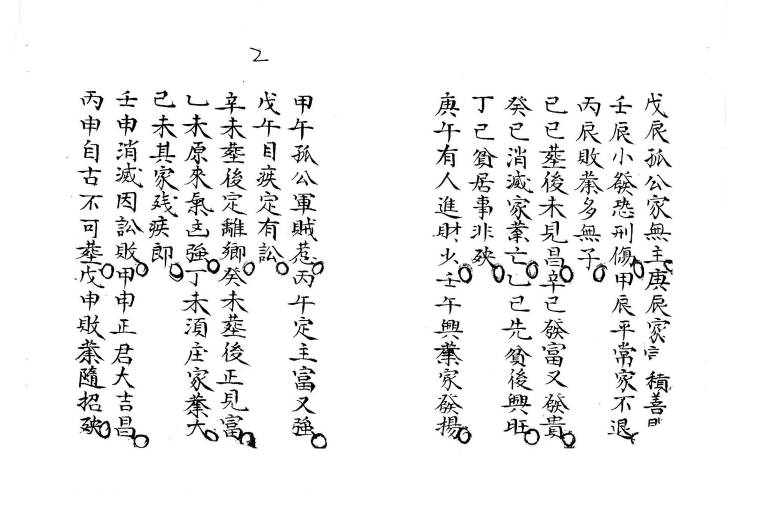 2
戊辰孤公家無主庚辰家宗積善
壬辰小發恐刑傷甲辰平常家不退
丙辰敗業多無子
己巳葬後未見昌辛巳發富又發貴
癸巳消滅家業亡乙巳先貧後興旺
丁巳貧居事非殃
庚午有人進財少壬午興業家發揚
甲午孤公軍賊惹丙午定主富又強
戊午目疾定有訟
辛未葬後定離鄉癸未葬後正見富
乙未原來氣言強丁未須庄家業大
己未其家残疾即
壬申消滅因訟敗甲申正君大吉昌
丙申自古不可葬戊申敗業隨招殃